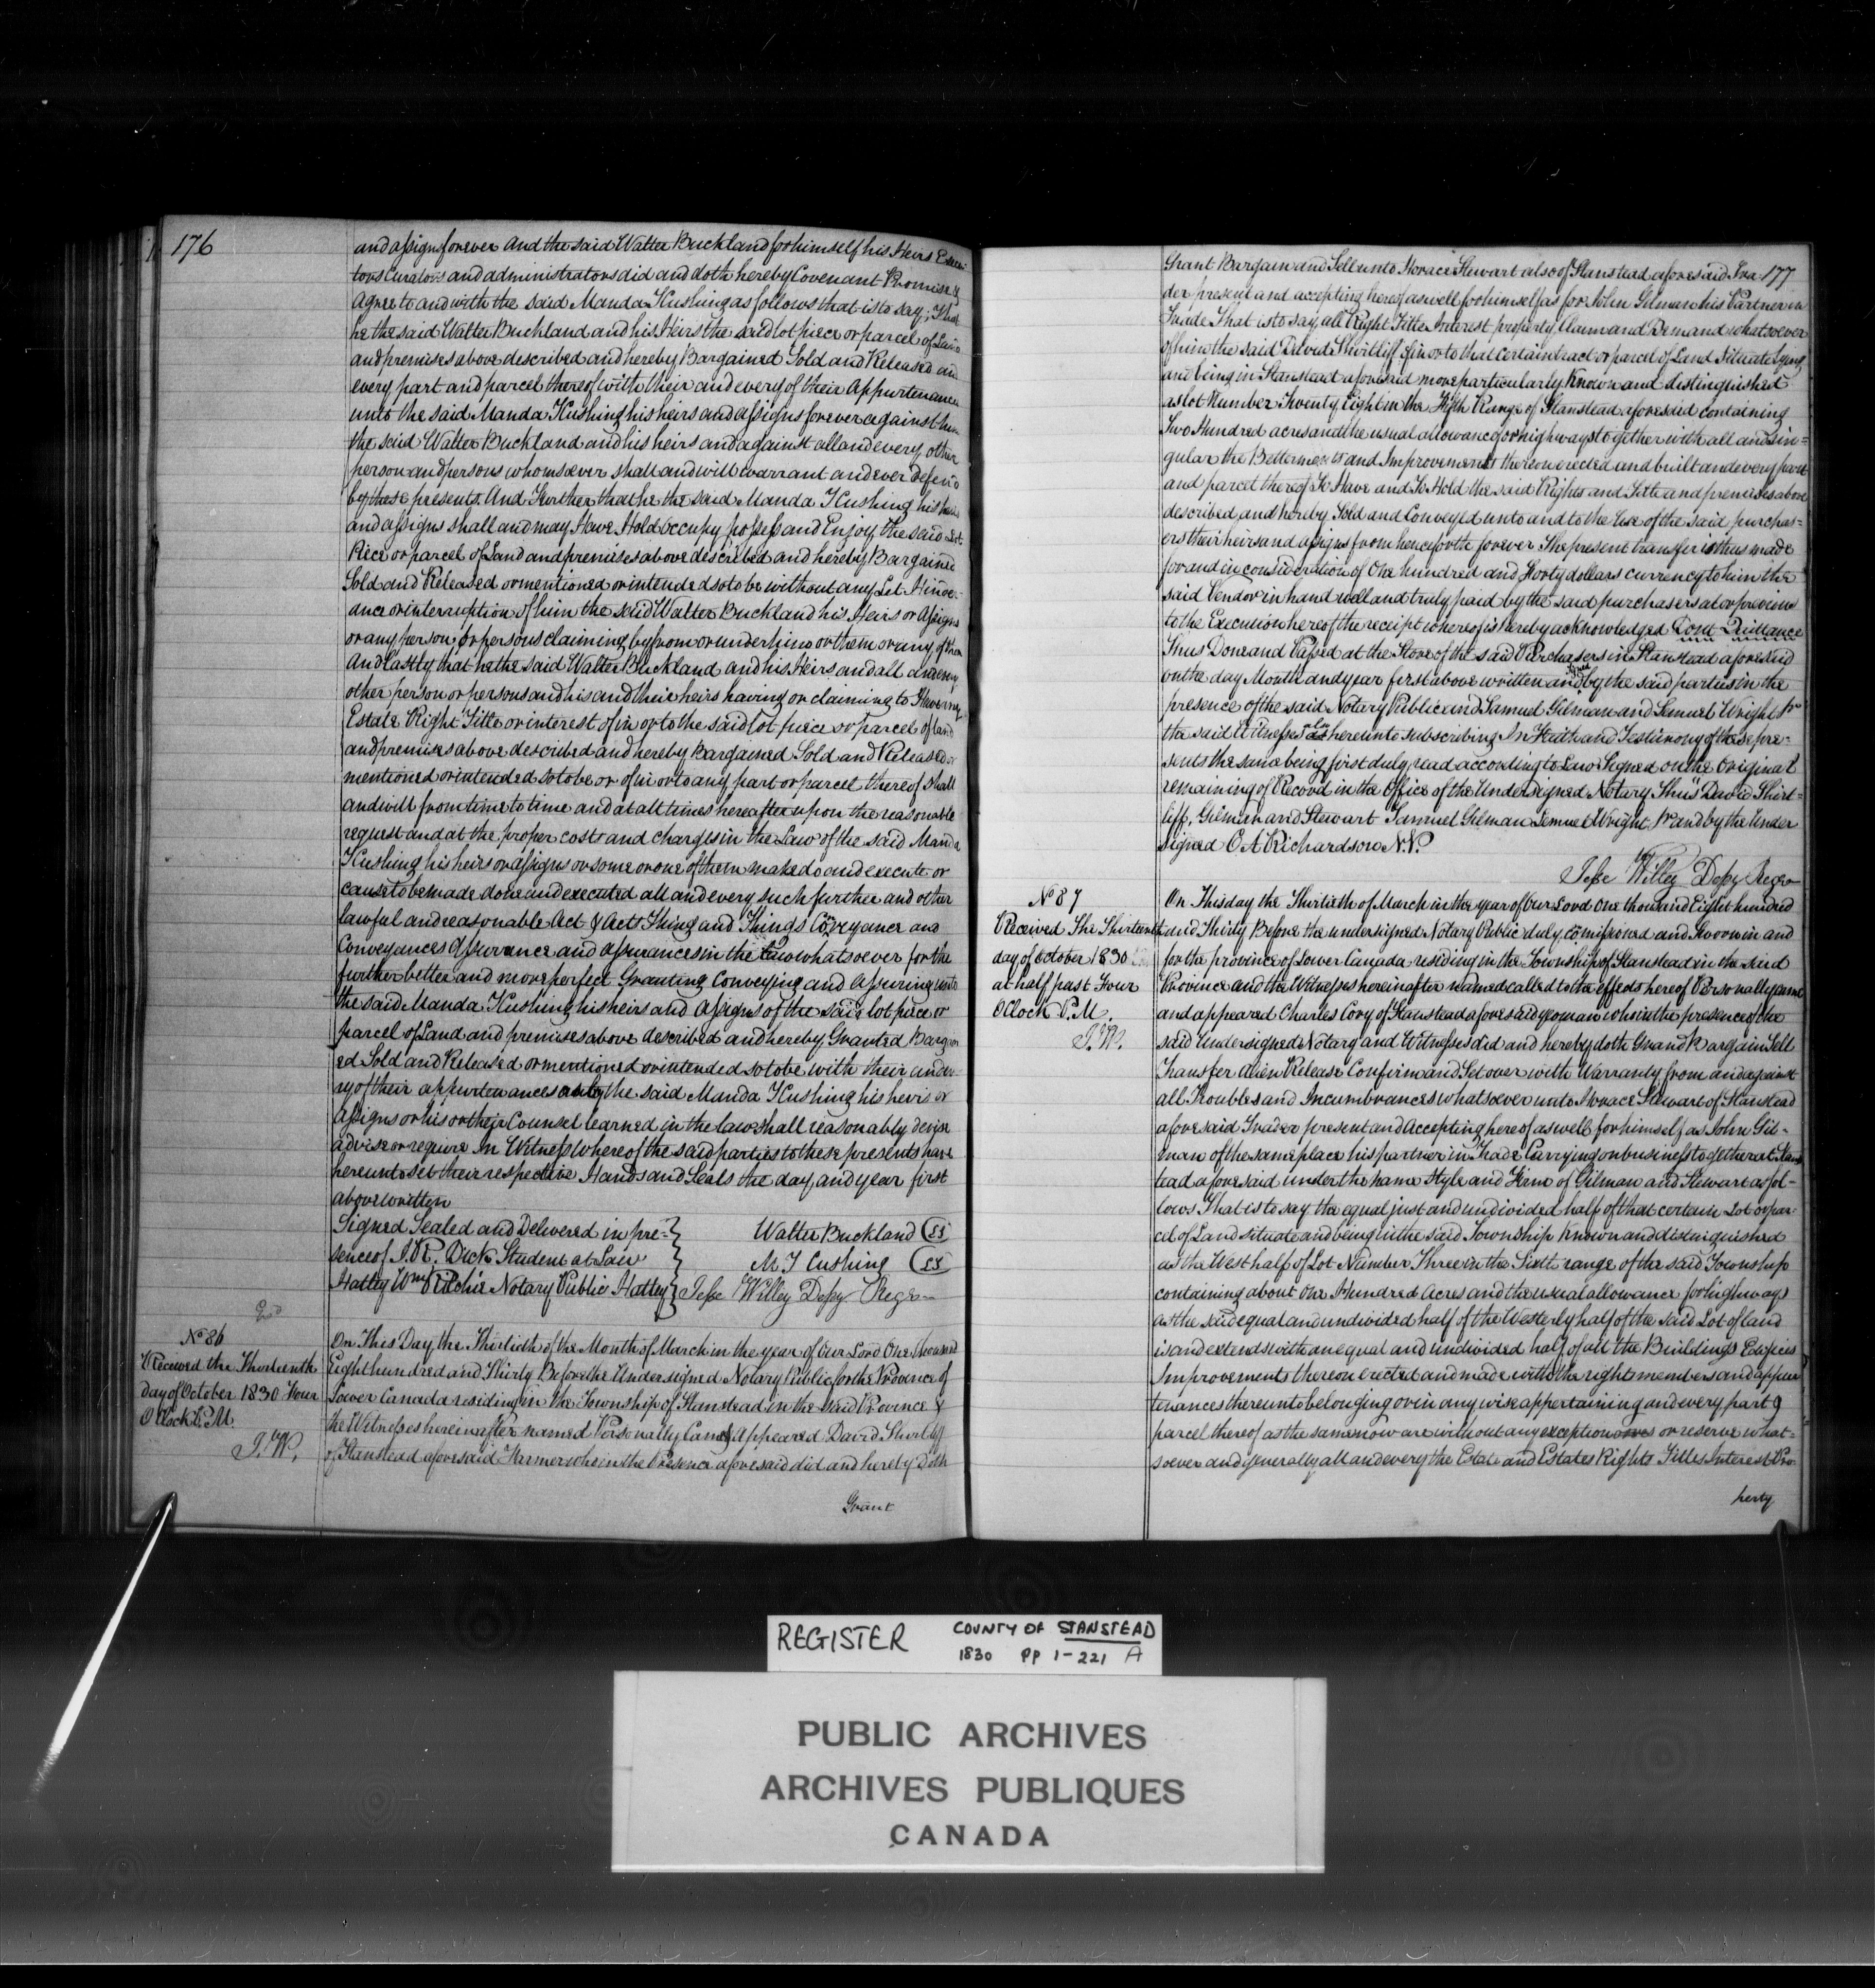 176
and assigns forever And the said Walter Buckland for himself his Heirs Execu
tors Curators and administrators did and doth hereby Covenant Promise &
agree to and with the said Manda J Cushing as follows that is to say; That
he the said Walter Buckland and his Heirs the said lot piece or parcel of Land
and premises above described and hereby Bargained Sold and Released and
every part and parcel thereof with their and every of their Appurtenances
unto the said Manda J Cushing his heirs and assigns forever against him
the said Walter Buckland and his heirs and against all and every other
person and persons whomsoever shall and will warrant and ever Defend
by these presents. And Further that he the said Manda J Cushing his heirs
and assigns shall and may Have Hold occupy possess and Enjoy the said Lot
Piece or parcel of Land and premises above described and hereby Bargained
Sold and Released or mentioned or intended so to be without any Let Hinder-
ance or interruption of him the said Walter Buckland his Heirs or Assigns
or any person or persons claiming by from or under him or them or any of them
And lastly that he the said Walter Buckland and his Heirs and all and every
other person or persons and his and their heirs having or claiming to Have any
Estate Right Title or interest of in or to the said lot piece or parcel of land
and premises above described and hereby Bargained Sold and Released or
mentioned or intended so to be or of in or to any part or parcel thereof shall
and will from time to time and at all times hereafter upon the reasonable
request and at the proper costs and charges in the Law of the said Manda
J Cushing his heirs or assigns or some or one of them make do and execute or
cause to be made done and executed all and every such further and other
lawful and reasonable Act & Acts Thing and Things Conveyance and
Conveyances Assurance and assurances in the Law whatsoever for the
further better and more perfect Granting Conveying and Assuring unto
the said Manda J Cushing his heirs and Assigns of the said lot piece or
parcel of Land and premises above described and hereby Granted Bargain
ed Sold and Released or mentioned or intended so to be with their and ev
ry of their appurtenances as by the said Manda J Cushing his heirs or
Assigns or his or their Counsel learned in the law shall reasonably devise
advise or require In Witness Whereof the said parties to these presents have
hereunto set their respective Hands and Seals the day and year first
above written
Signed Sealed and Delivered in pre- } Walter Buckland (LS)
sence of J. R. Dick Student at Law } M J Cushing (LS)
Hatley Wm Ritchie Notary Public Hatley } Jesse Willey Depy Regr
No 86
Received the Thirteenth
Day of October 1830 Four
O Clock P.M.
J. W.
On This Day the Thirtieth of the Month of March in the year of Our Lord One thousand
Eight hundred and Thirty Before the Undersigned Notary Public for the Province of
Lower Canada residing in the Township of Stanstead in the said Province &
the Witnesses hereinafter named Personally Came & Appeared David Shirtliff
of Stanstead aforesaid Farmer who in the Presence aforesaid did and hereby Doth
Grant
177
Grant Bargain and Sell unto Horace Stewart also of Stanstead aforesaid Tra
der present and accepting hereof as well for himself as for John Gilman his Partner in
Trade That is to say, all Right Title Interest property Claim and Demand whatsoever
of him the said David Shirtliff of in or to that certain tract or parcel of Land Situate lying
and being in Stanstead aforesaid more particularly Known and distinguished
as lot Number Twenty Eight in the Fifth Range of Stanstead aforesaid containing
Two Hundred acres and the usual allowance for highways together with all and sin=
gular the Betterments and Improvements thereon erected and built and every part
and parcel thereof To Have and To Hold the said Rights and Title and premises above
described, and hereby Sold and Conveyed unto and to the Use of the said purchas=
ers their heirs and assigns from henceforth forever The present transfer is thus made
for and in consideration of One hundred and Forty dollars currency to him the
said Vendor in hand well and truly paid by the said purchasers at or previous
to the Execution hereof the receipt whereof is hereby acknowledged Dont Quittance
Thus Done and Passed at the Store of the said Purchasers in Stanstead aforesaid
on the day Month and year first above written and signed by the said parties in the
presence of the said Notary Public and Samuel Gilman and Lemuel Wright Jr
the said Witnesses also hereunto subscribing In Faith and Testimony of these pre-
sents the same being first duly read according to Law Signed on the Original
remaining of Record in the Office of the Undersigned Notary Thus "David Shirt=
liff, Gilman and Stewart Samuel Gilman Lemuel Wright Jr and by the Under
signed O A Richardson N.P.
Jesse Willey Depy Regr
No 87
Received The Thirteenth
day of October 1830
at half past Four
OClock P.M.
J. W.
On This day the Thirtieth of March in the year of Our Lord One thousand Eight hundred
and Thirty Before the undersigned Notary Public duly comissioned and Sworn in and
for the province of Lower Canada residing in the Township of Stanstead in the said
Province and the Witnesses hereinafter named called to the effects hereof Personally came
and appeared Charles Cory of Stanstead aforesaid yeoman who in the presence of the
said Undersigned Notary and Witnesses did and hereby doth Grand Bargain Sell
Transfer Alien Release Confirm and Set over with Warranty from and against
all Troubles and Incumbrances whatsoever unto Horace Stewart of Stanstead
aforesaid Trader present and Accepting hereof as well for himself as John Gil-
man of the same place his partner in Trade Carrying on business together at Stans
tead aforesaid under the name Style and Firm of Gilman and Stewart as fol-
lows That is to say the equal just and undivided half of that certain Lot or par-
cel of Land situate and being in the said Township Known and distinguished
as the West half of Lot Number Three in the Sixth range of the said Township
containing about One Hundred Acres and the usual allowance for highways
as the said equal and undivided half of the Westerly half of the said Lot of land
is and extends with an equal and undivided half of all the Buildings Edifices
Improvements thereon erected and made with the rights members and appur
tenances thereunto belonging or in any wise appertaining and every part &
parcel thereof as the same now are without any exception or reserve what=
soever and generally all and every the Estate and Estates Rights Titles Interest Pro
perty
REGISTER COUNTY OF STANSTEAD
1830 PP 1-221 A
PUBLIC ARCHIVES
ARCHIVES PUBLIQUES
CANADA